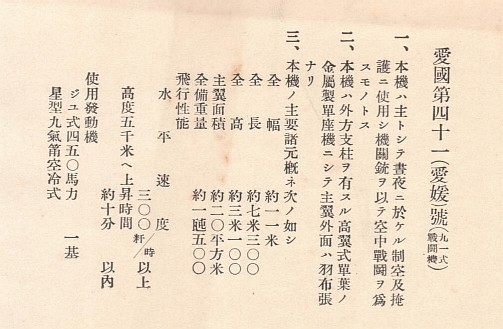 愛國第四十一(愛媛)號(九一式戰鬪機)
一、本機ハ主トシテ晝夜ニ於ケル制空及掩
護ニ使用シ機關銃ヲ以テ空中戰鬪ヲ爲
スモノトス
二、本機ハ外方支柱ヲ有スル高翼式單葉ノ
金屬製單座機ニシテ主翼外面ハ羽布張
ナリ
三、本機ノ主要諸元概ネ次ノ如シ
全幅 約一一米
全長 約七米三〇〇
全高 約三米一〇〇
主翼面積 約二〇平方米
全備重量 約一瓲五〇〇
飛行性能
水平速度 三〇〇粁/時以上
高度五千米ヘ上昇時間 約十分以內
使用發動機
ジユ式四五〇馬力 一基
星型九氣筩空冷式